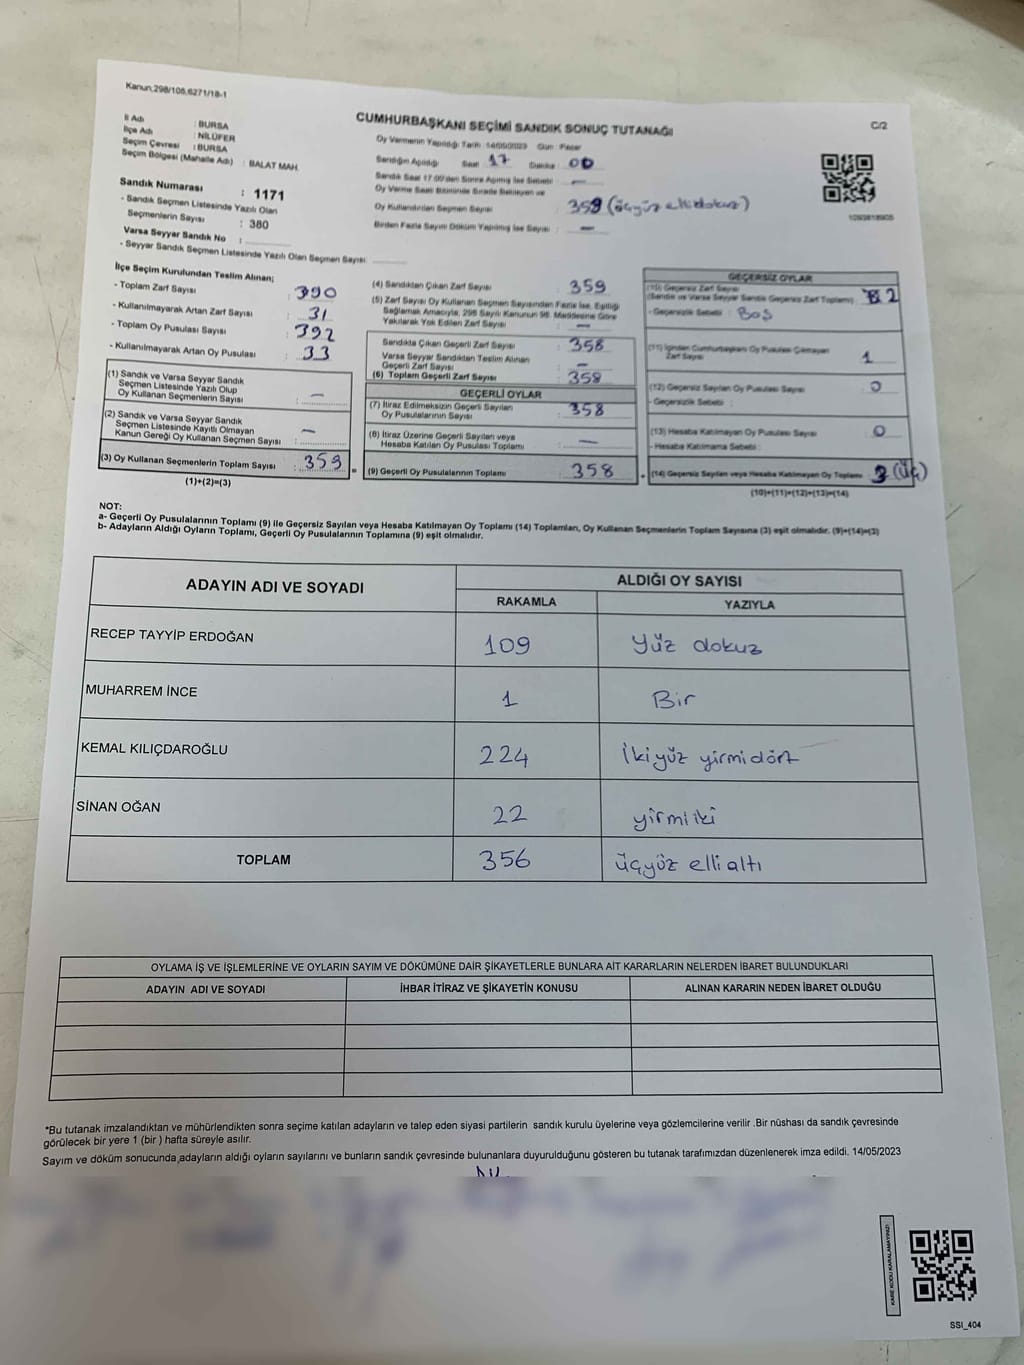 Kanun,298/105,6271/18-1
CUMHURBAŞKANI SEÇİMİ SANDIK SONUÇ TUTANAĞI
C/2
İl Adı : BURSA
İlçe Adı : NİLÜFER
Seçim Çevresi : BURSA
Seçim Bölgesi (Mahalle Adı) : BALAT MAH.
Oy Vermenin Yapıldığı Tarih 14/05/2023 Gün : Pazar
Sandığın Açıldığı Saat : 17 Dakika : 00
Sandık Saat 17.00'den Sonra Açılmış İse Sebebi : —
Oy Verme Saati Bitiminde Sırada Bekleyen ve
Oy Kullandırılan Seçmen Sayısı : 359 (üçyüz ellidokuz)
Birden Fazla Sayım Döküm Yapılmış İse Sayısı : —
Sandık Numarası : 1171
- Sandık Seçmen Listesinde Yazılı Olan
Seçmenlerin Sayısı : 380
Varsa Seyyar Sandık No :
- Seyyar Sandık Seçmen Listesinde Yazılı Olan Seçmen Sayısı:
İlçe Seçim Kurulundan Teslim Alınan;
- Toplam Zarf Sayısı : 390
- Kullanılmayarak Artan Zarf Sayısı : 31
- Toplam Oy Pusulası Sayısı : 392
- Kullanılmayarak Artan Oy Pusulası : 33
(1) Sandık ve Varsa Seyyar Sandık
Seçmen Listesinde Yazılı Olup
Oy Kullanan Seçmenlerin Sayısı : —
(2) Sandık ve Varsa Seyyar Sandık
Seçmen Listesinde Kayıtlı Olmayan
Kanun Gereği Oy Kullanan Seçmen Sayısı : —
(3) Oy Kullanan Seçmenlerin Toplam Sayısı : 359
(1)+(2)=(3)
(4) Sandıktan Çıkan Zarf Sayısı : 359
(5) Zarf Sayısı Oy Kullanan Seçmen Sayısından Fazla İse, Eşitliği
Sağlamak Amacıyla, 298 Sayılı Kanunun 98. Maddesine Göre
Yakılarak Yok Edilen Zarf Sayısı : —
Sandıkta Çıkan Geçerli Zarf Sayısı : 358
Varsa Seyyar Sandıktan Teslim Alınan
Geçerli Zarf Sayısı : —
(6) Toplam Geçerli Zarf Sayısı : 358
GEÇERLİ OYLAR
(7) İtiraz Edilmeksizin Geçerli Sayılan
Oy Pusulalarının Sayısı : 358
(8) İtiraz Üzerine Geçerli Sayılan veya
Hesaba Katılan Oy Pusulası Toplamı : —
(9) Geçerli Oy Pusulalarının Toplamı : 358
GEÇERSİZ OYLAR
(10) Geçersiz Zarf Sayısı
(Sandık ve Varsa Seyyar Sandık Geçersiz Zarf Toplamı) : 2
- Geçersizlik Sebebi : Boş
(11) İçinden Cumhurbaşkanı Oy Pusulası Çıkmayan
Zarf Sayısı : 1
(12) Geçersiz Sayılan Oy Pusulası Sayısı : 0
- Geçersizlik Sebebi :
(13) Hesaba Katılmayan Oy Pusulası Sayısı : 0
- Hesaba Katılmama Sebebi :
(14) Geçersiz Sayılan veya Hesaba Katılmayan Oy Toplamı : 3 (üç)
(10)+(11)+(12)+(13)=(14)
NOT:
a- Geçerli Oy Pusulalarının Toplamı (9) ile Geçersiz Sayılan veya Hesaba Katılmayan Oy Toplamı (14) Toplamları, Oy Kullanan Seçmenlerin Toplam Sayısına (3) eşit olmalıdır. (9)+(14)=(3)
b- Adayların Aldığı Oyların Toplamı, Geçerli Oy Pusulalarının Toplamına (9) eşit olmalıdır.
ADAYIN ADI VE SOYADI ALDIĞI OY SAYISI
RAKAMLA YAZIYLA
RECEP TAYYİP ERDOĞAN 109 Yüz dokuz
MUHARREM İNCE 1 Bir
KEMAL KILIÇDAROĞLU 224 İkiyüz yirmidört
SİNAN OĞAN 22 yirmiiki
TOPLAM 356 üçyüz ellialtı
OYLAMA İŞ VE İŞLEMLERİNE VE OYLARIN SAYIM VE DÖKÜMÜNE DAİR ŞİKAYETLERLE BUNLARA AİT KARARLARIN NELERDEN İBARET BULUNDUKLARI
ADAYIN ADI VE SOYADI İHBAR İTİRAZ VE ŞİKAYETİN KONUSU ALINAN KARARIN NEDEN İBARET OLDUĞU
*Bu tutanak imzalandıktan ve mühürlendikten sonra seçime katılan adayların ve talep eden siyasi partilerin sandık kurulu üyelerine veya gözlemcilerine verilir .Bir nüshası da sandık çevresinde
görülecek bir yere 1 (bir ) hafta süreyle asılır.
Sayım ve döküm sonucunda ,adayların aldığı oyların sayılarını ve bunların sandık çevresinde bulunanlara duyurulduğunu gösteren bu tutanak tarafımızdan düzenlenerek imza edildi. 14/05/2023
KARE KODU KARALAMAYINIZ!
SSI_404